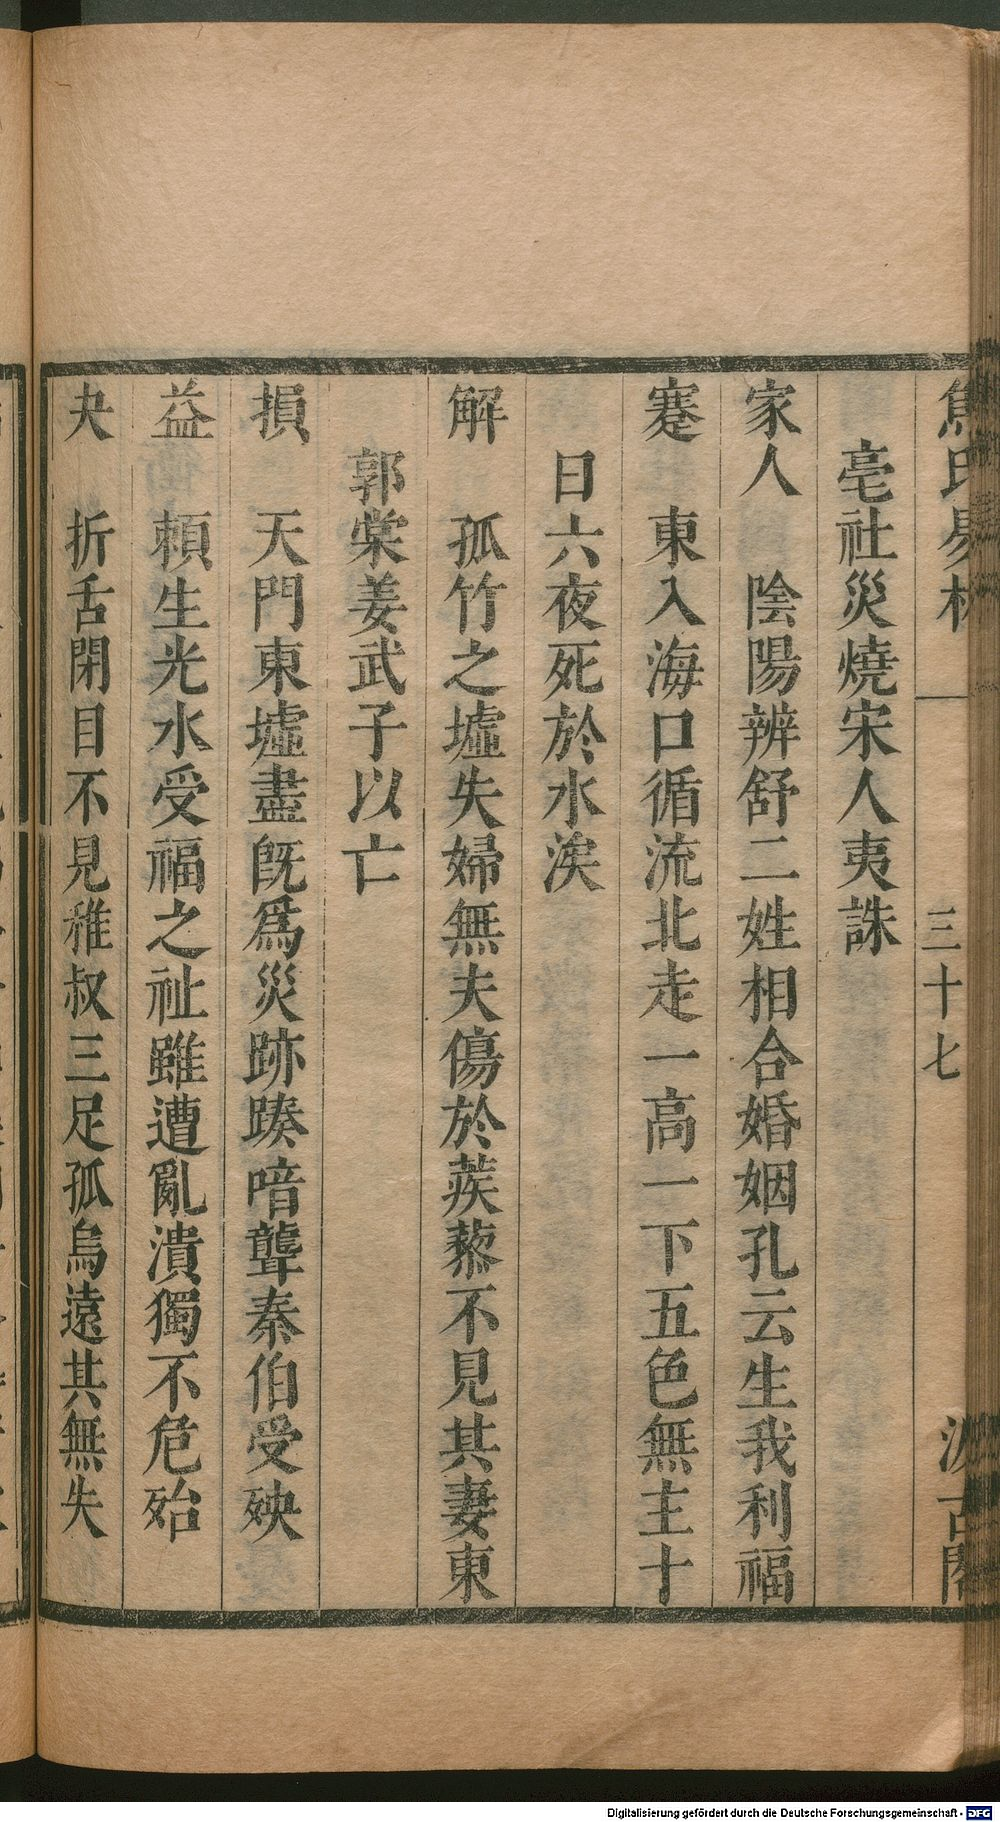 焦氏易林 一 三十七 汲古閣
亳社災燒宋人夷誅
家人 陰陽辨舒二姓相合婚姻孔云生我利福
蹇 東入海口循流北走一高一下五色無主十
日六夜死於水涘
解 孤竹之墟失婦無夫傷於蒺藜不見其妻東
郭棠姜武子以亡
損 天門東墟盡旣爲災跡踈喑聾秦伯受殃
益 頼生光水受福之祉雖遭亂潰獨不危殆
夬 折舌閉目不見稚叔三足孤烏遠其無失
Digitalisierung gefördert durch die Deutsche Forschungsgemeinschaft - DFG